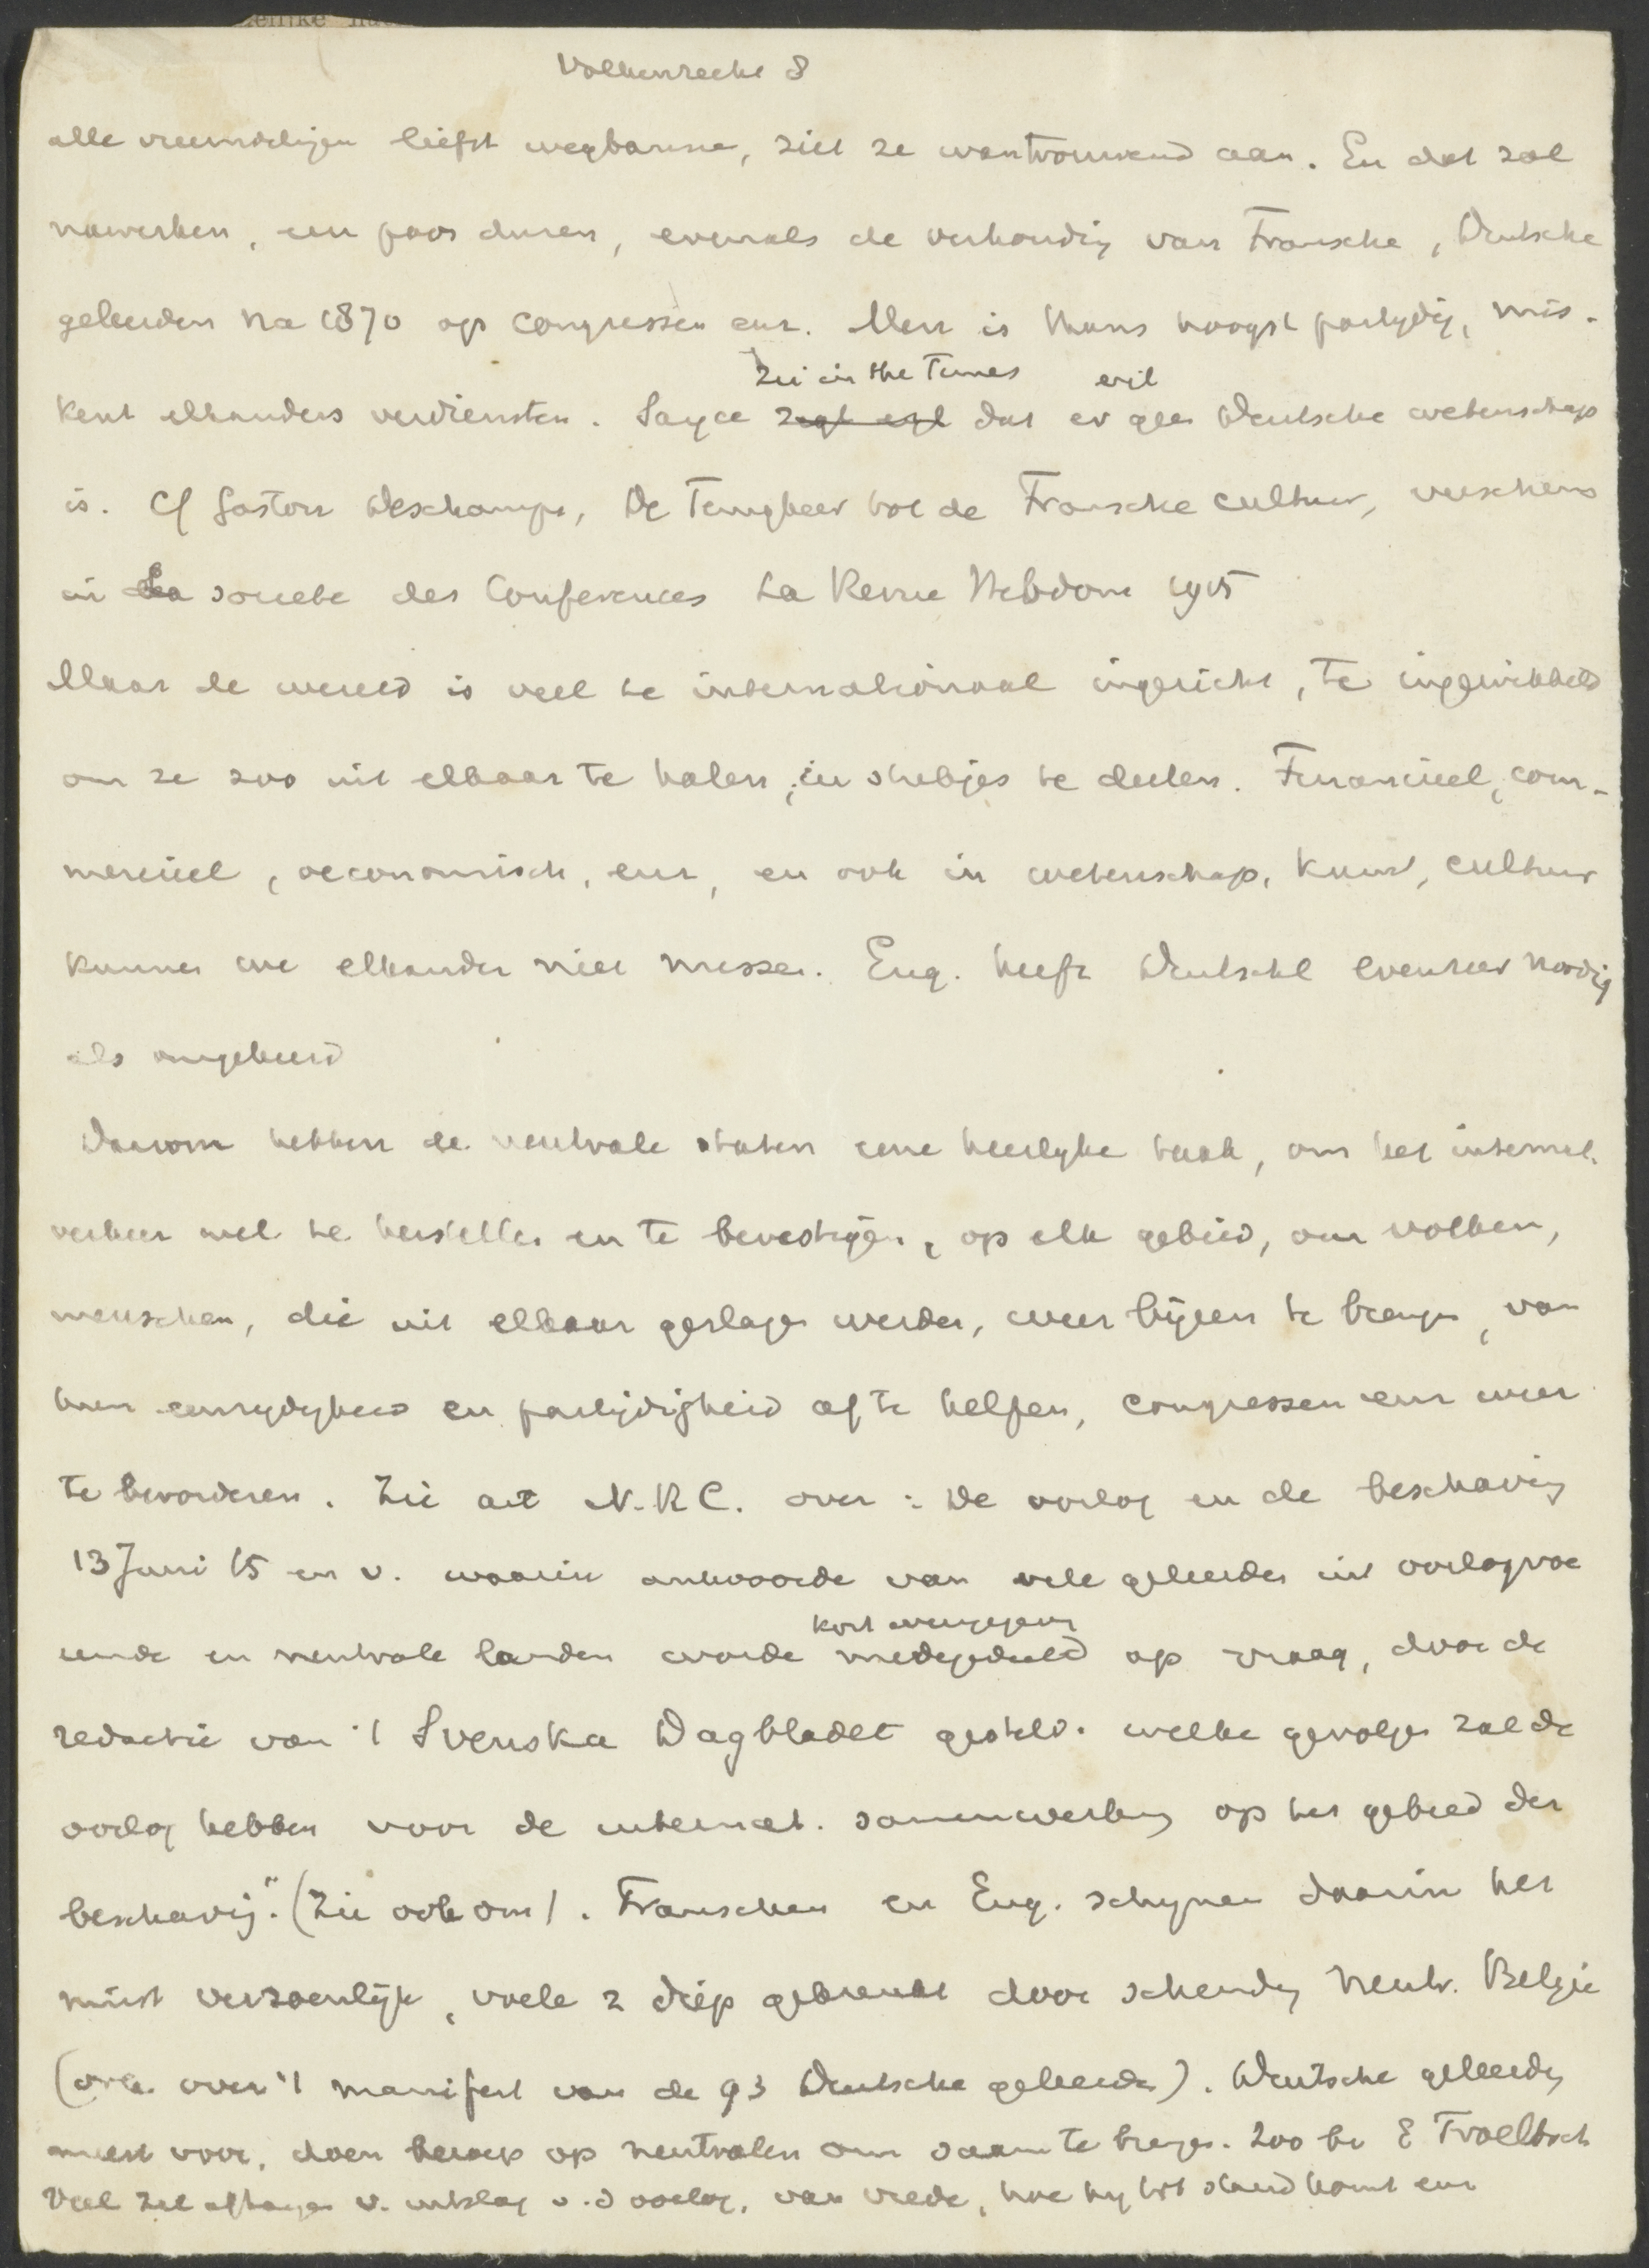 Volkenrecht 8
alle vreemdelingen liefst wegbannen, ziet ze wantrouwend aan. En dat zal
nawerken, een poos duren, evenals de verhoudig van Fransche, Deutsche
geleerden na 1870 op congressen enz. Men is thans hoogst partydig, mis-
Zie in the Times evil
kent elkanders verdiensten. Sayce zegt erg dat er geen Deutsche wetenschap
is. Cf Gaston Deschamps, De Terugkeer tot de Fransche cultuur, verschenen
in La societe des Conferences La Revue Hebdom 1915
Maar de wereld is veel te internationaal ingericht, te ingewikkeld
om ze zoo uit elkaar te halen, in stukjes te deelen. Financieel, com-
mercieel, oeconomisch, enz, en ook in wetenschap, kunst, cultuur
kunnen we elkander niet missen. Eng. heeft Deutschl evenzeer noodig
als omgekeerd
Daarom hebben de neutrale staten eene heerlyke taak, om het internat.
verkeer weer te herstellen en te bevestigen, op elk gebied, om volken,
menschen, die uit elkaar geslagen werden, weer bijeen te brengen, van
hun eenzydigheid en partijdigheid af te helpen, congressen enz weer
te bevorderen. Zie art N.R.C. over: De oorlog en de beschaving
13 Juni 15 en v. waarin antwoorde van vele geleerden uit oorlogvoe
kort weergegeven
rende en neutrale landen worde medegedeeld op vraag, door de
redactie van 't Svenska Dagbladet gesteld. welke gevolgen zal de
oorlog hebben voor de internat. samenwerking op het gebied der
beschavig." (Zie ook om). Franschen en Eng. schynen daarin het
minst verzoenlijk, voele z diep gekrenkt door schendig neutr. Belgie
(ook over 't manifest van de 93 Deutsche geleerden). Deutsche geleerden
meest voor, doen beroep op neutralen om saam te brengen. Zoo bv E Troeltsch
Veel zal afhangen v. uitslag v. d oorlog, van vrede, hoe hy tot stand komt enz